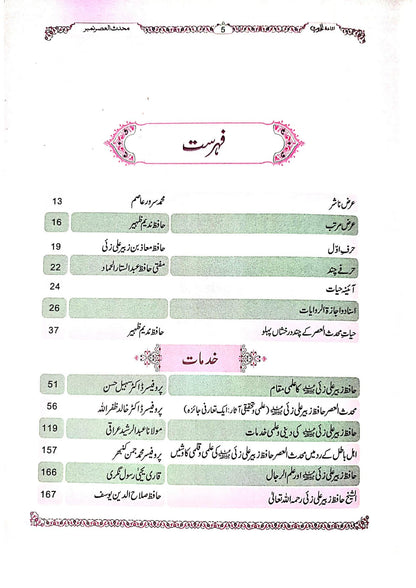 محدث العصر نمبر 5
فہرست
عرض ناشر محمد سرور عاصم 13
عرض مرتب حافظ ندیم ظہیر 16
حرف اوّل حافظ معاذ بن زبیر علی زئی 19
حرفے چند مفتی حافظ عبدالستار الحماد 22
آئینہ حیات 24
اسناد و اجازۃ الروایات 26
حیاتِ محدث العصر کے چند درخشاں پہلو حافظ ندیم ظہیر 37
خدمات
حافظ زبیر علی زئی کا علمی مقام پروفیسر ڈاکٹر سہیل حسن 51
محدث العصر حافظ زبیر علی زئی (علمی و تحقیقی آثار: ایک تعارفی جائزہ) پروفیسر ڈاکٹر خالد ظفر اللہ 56
حافظ زبیر علی زئی کی دینی و علمی خدمات مولانا عبدالرشید عراقی 119
اہل باطل کے رد میں محدث العصر حافظ زبیر علی زئی کی علمی و قلمی کاوشیں پروفیسر محمد حسن کنبھر 157
حافظ زبیر علی زئی اور علم الرجال قاری یحییٰ رسول نگری 166
الشیخ حافظ زبیر علی زئی رحمہ اللہ تعالیٰ حافظ صلاح الدین یوسف 167